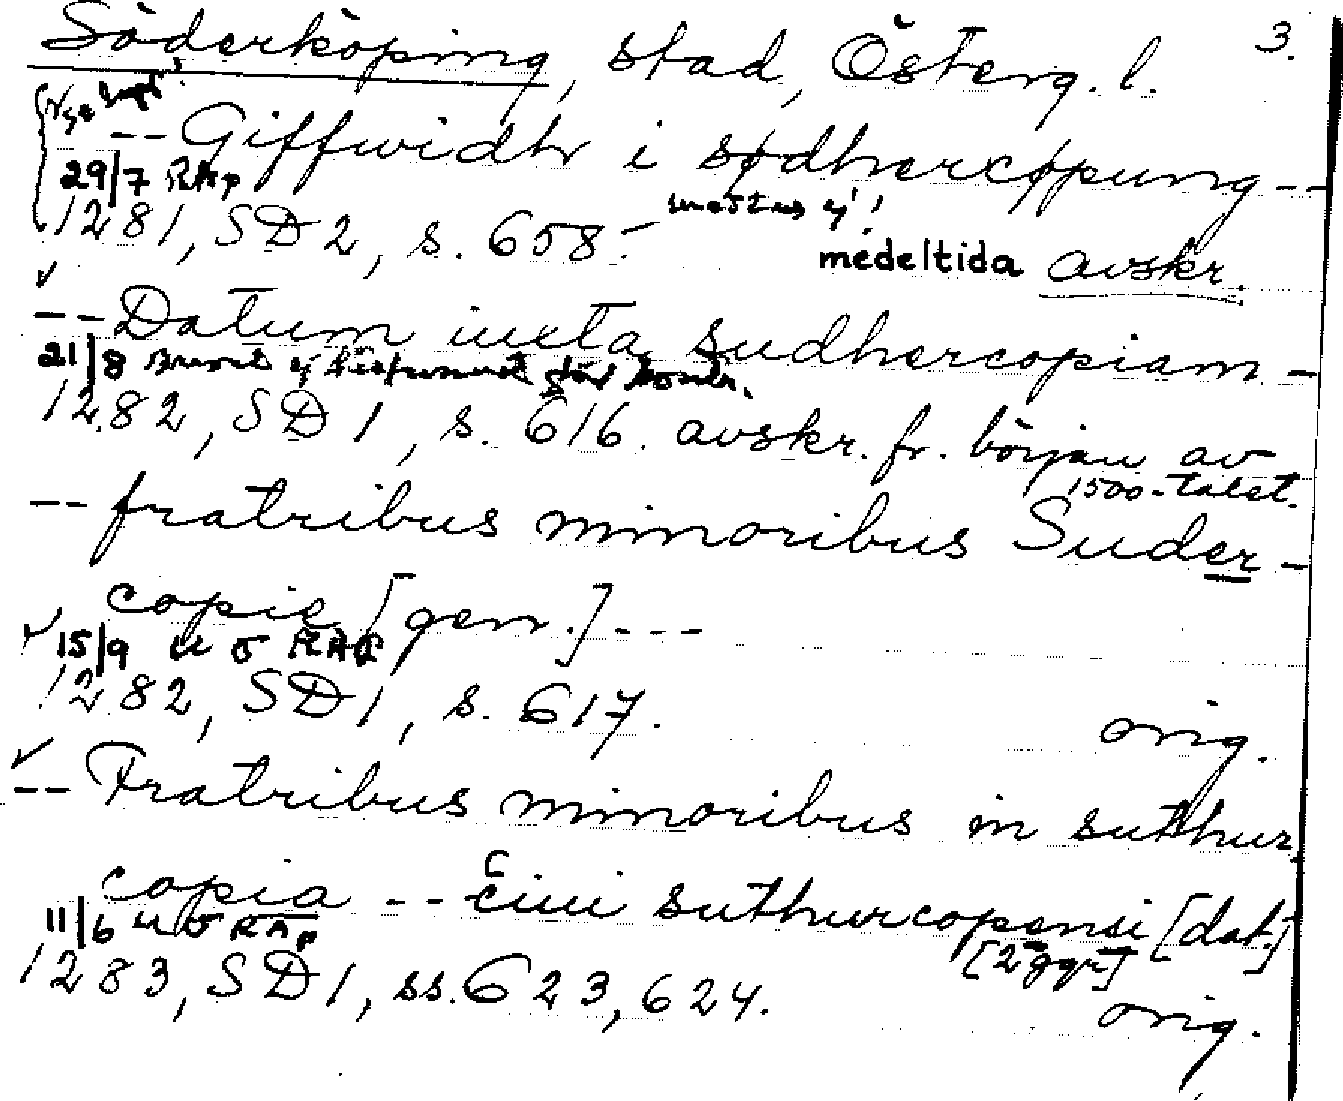 Söderköping, stad, Österg. l. 3.
-- Giffwidhr i sødhercøpung --
29/7 RAp
1281, SD 2, s. 658. ej!
medeltida avskr.
-- Datum iuxta sudhercopiam -
21/8 ej för
1282, SD 1, s. 616. avskr. fr. början av
1500-talet.
-- fratribus minoribus Suder-
copie [gen.] ---
15/9 u σ RAp
1282, SD 1, s. 617. orig.
-- Fratribus minoribus in suthur
copia -- Ciui suthurcopensi [dat.]
[2 ggr]
11/6 u σ RAp
1283, SD 1, ss. 623, 624. orig.